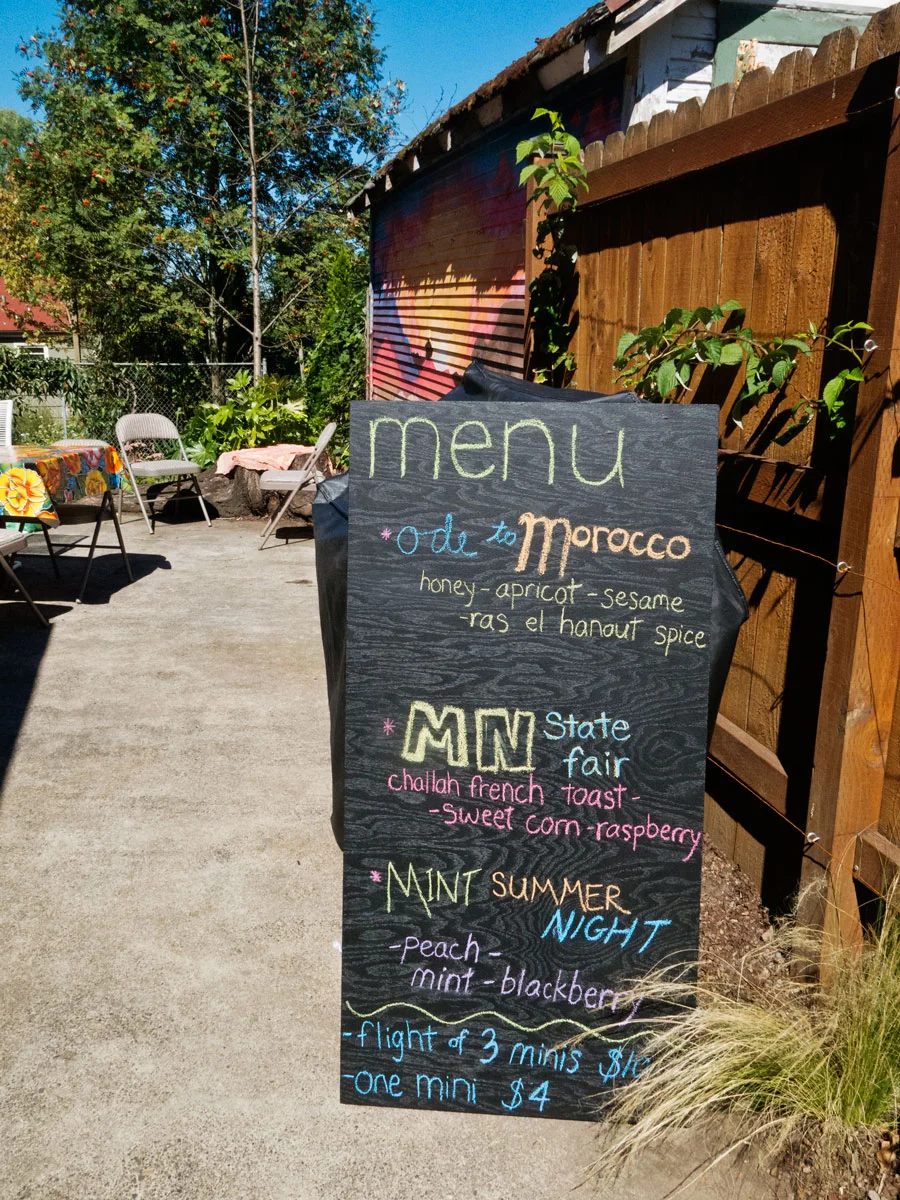 menu
*ode to Morocco
honey-apricot-sesame
-ras el hanout spice
*MN State
fair
challah french toast-
-sweet corn-raspberry
*MINT SUMMER
NIGHT
-peach-
mint-blackberry
-flight of 3 minis $10
-one mini $4